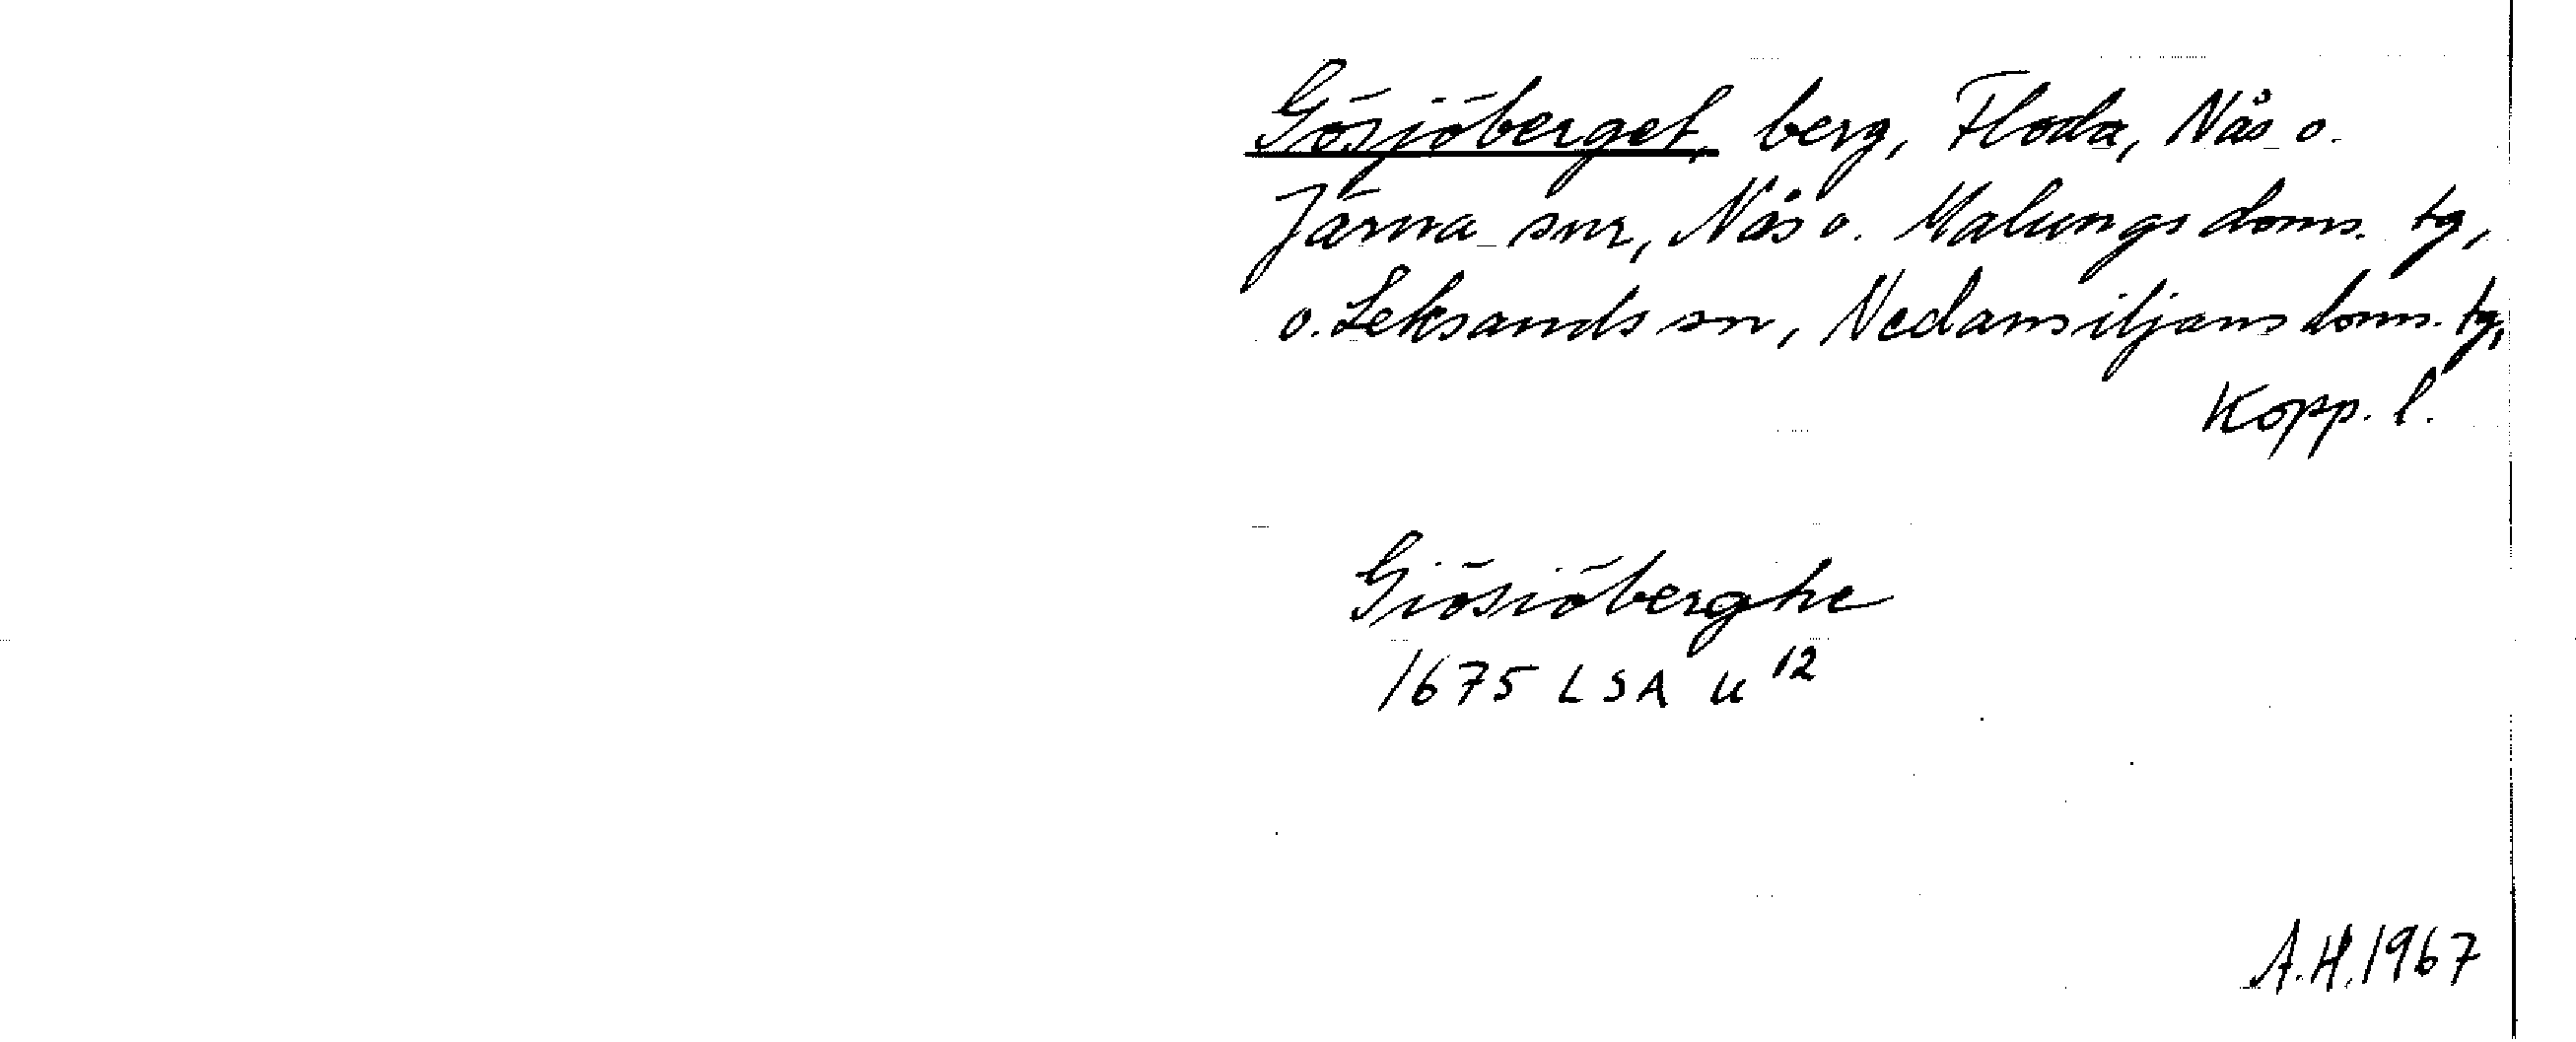 Gösjöberget, berg, Floda, Nås o.
Järna snr, Nås o. Malungs doms. tg,
o. Leksands sn, Nedansiljans doms. tg,
Kopp. l.
Giösiöberghe
1675 LSA U 12
A.H. 1967